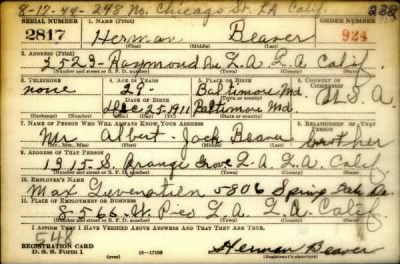 8-17-44- 248 No. Chicago St. LA Calif. 238
SERIAL NUMBER 1. NAME (Print) ORDER NUMBER
2817 Herman Beaver 924
(First) (Middle) (Last)
2. ADDRESS (Print)
2529- Raymond Ave L.A. L.A. Calif.
(Number and street or R. F. D. number) (Town) (County) (State)
3. TELEPHONE 4. AGE IN YEARS 5. PLACE OF BIRTH 6. COUNTRY OF CITIZENSHIP
none 29- Baltimore Md. U.S.A.
DATE OF BIRTH
Dec 25 1911 Baltimore Md.
7. NAME OF PERSON WHO WILL ALWAYS KNOW YOUR ADDRESS 8. RELATIONSHIP OF THAT PERSON
Mr Albert- Jack Beaver brother
(Mr., Mrs., Miss) (First) (Middle) (Last)
9. ADDRESS OF THAT PERSON
1915 S. Orange Grove L.A. L.A. Calif.
(Number and street or R. F. D. number) (Town) (County) (State)
10. EMPLOYER'S NAME
Max 5806
11. PLACE OF EMPLOYMENT OR BUSINESS
8566- W. Pico L.A. L.A. Calif.
(Number and street or R. F. D. number) (Town) (County) (State)
I AFFIRM THAT I HAVE VERIFIED ABOVE ANSWERS AND THAT THEY ARE TRUE.
548
REGISTRATION CARD
D. S. S. FORM 1 Herman Beaver